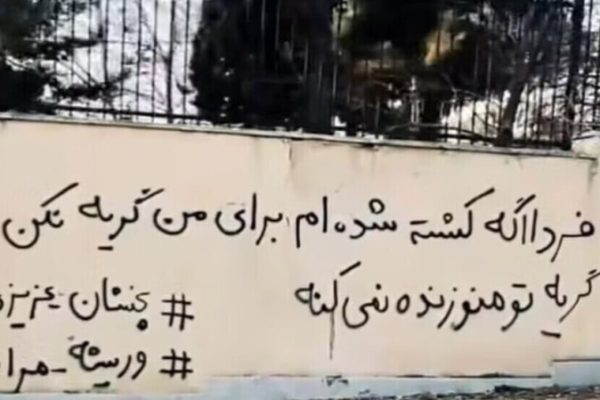 فردا اگه کشته شده ام برای من گریه نکن
گریه تو منو زنده نمی کنه
# پخشان_عزیز
# وریشه_مرا